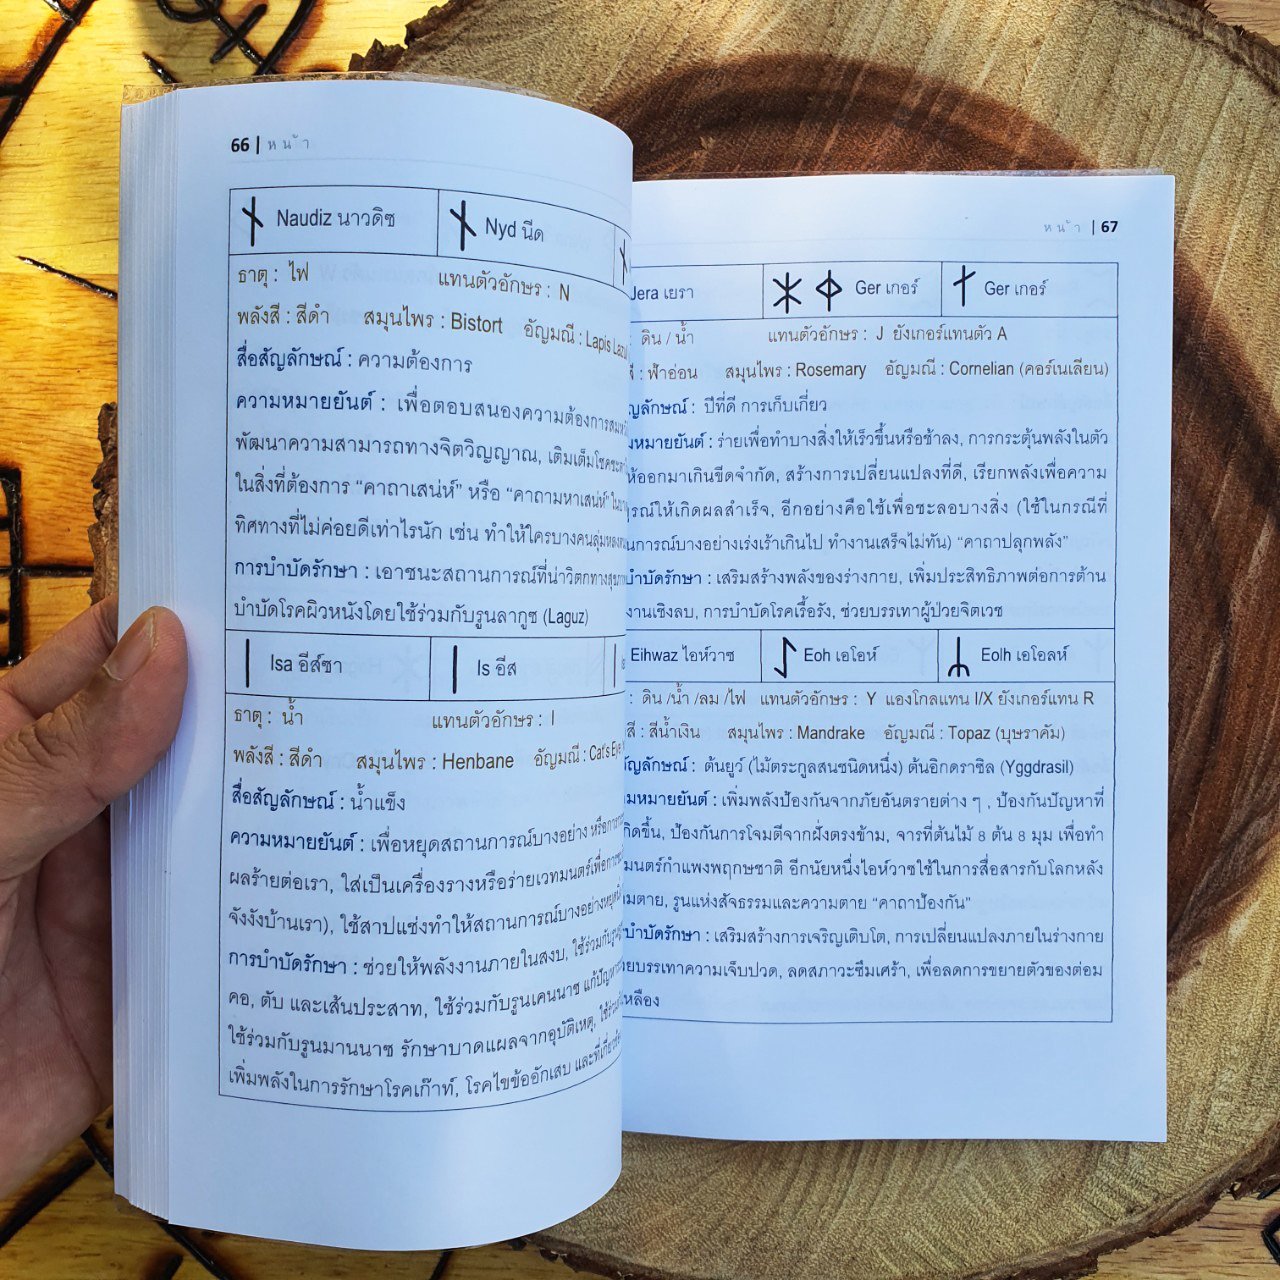 66 | ห น ้ า
Naudiz นาวดิซ
Nyd นีด
ธาตุ : ไฟ แทนตัวอักษร : N
พลังสี : สีดำ สมุนไพร : Bistort อัญมณี : Lapis
สื่อสัญลักษณ์ : ความต้องการ
ความหมายยันต์ : เพื่อตอบสนองความต้องการ
พัฒนาความสามารถทางจิตวิญญาณ, เติมเต็ม
ในสิ่งที่ต้องการ “คาถาเสน่ห์” หรือ “คาถามหาเสน่ห์”
ทิศทางที่ไม่ค่อยดีเท่าไรนัก เช่น ทำให้ใครบางคนลุ่มหลง
การบำบัดรักษา : เอาชนะสถานการณ์ที่น่าวิตกทาง
บำบัดโรคผิวหนังโดยใช้ร่วมกับรูนลากูซ (Laguz)
Isa อีส์ซา
Is อีส
ธาตุ : น้ำ แทนตัวอักษร : I
พลังสี : สีดำ สมุนไพร : Henbane อัญมณี : Cat's Eye
สื่อสัญลักษณ์ : น้ำแข็ง
ความหมายยันต์ : เพื่อหยุดสถานการณ์บางอย่าง
ผลร้ายต่อเรา, ใส่เป็นเครื่องรางหรือร่ายเวทมนตร์
จังงังบ้านเรา), ใช้สาปแช่งทำให้สถานการณ์บางอย่าง
การบำบัดรักษา : ช่วยให้พลังงานภายในสงบ, ใช้ร่วมกับ
คอ, ตับ และเส้นประสาท, ใช้ร่วมกับรูนเคนนาซ
ใช้ร่วมกับรูนมานนาซ รักษาบาดแผลจากอุบัติเหตุ,
เพิ่มพลังในการรักษาโรคเก๊าท์, โรคไขข้ออักเสบ
หน ้ า | 67
Jera เยรา
Ger เกอร์
Ger เกอร์
ดิน / น้ำ แทนตัวอักษร : J ยังเกอร์แทนตัว A
ฟ้าอ่อน สมุนไพร : Rosemary อัญมณี : Cornelian (คอร์เนเลียน)
ญลักษณ์ : ปีที่ดี การเก็บเกี่ยว
มหมายยันต์ : ร่ายเพื่อทำบางสิ่งให้เร็วขึ้นหรือช้าลง, การกระตุ้นพลังในตัว
ห้ออกมาเกินขีดจำกัด, สร้างการเปลี่ยนแปลงที่ดี, เรียกพลังเพื่อความ
รณ์ให้เกิดผลสำเร็จ, อีกอย่างคือใช้เพื่อชะลอบางสิ่ง (ใช้ในกรณีที่
นการณ์บางอย่างเร่งเร้าเกินไป ทำงานเสร็จไม่ทัน) “คาถาปลุกพลัง”
บำบัดรักษา : เสริมสร้างพลังของร่างกาย, เพิ่มประสิทธิภาพต่อการต้าน
งานเชิงลบ, การบำบัดโรคเรื้อรัง, ช่วยบรรเทาผู้ป่วยจิตเวช
Eihwaz ไอห์วาซ
Eoh เอโอห์
Eolh เอโอลห์
: ดิน /น้ำ /ลม /ไฟ แทนตัวอักษร : Y แองโกลแทน I/X ยังเกอร์แทน R
สี : สีน้ำเงิน สมุนไพร : Mandrake อัญมณี : Topaz (บุษราคัม)
ญลักษณ์ : ต้นยูว์ (ไม้ตระกูลสนชนิดหนึ่ง) ต้นอิกดราซิล (Yggdrasil)
มหมายยันต์ : เพิ่มพลังป้องกันจากภัยอันตรายต่าง ๆ , ป้องกันปัญหาที่
กิดขึ้น, ป้องกันการโจมตีจากฝั่งตรงข้าม, จารที่ต้นไม้ 8 ต้น 8 มุม เพื่อทำ
มนตร์กำแพงพฤกษชาติ อีกนัยหนึ่งไอห์วาซใช้ในการสื่อสารกับโลกหลัง
มตาย, รูนแห่งสัจธรรมและความตาย “คาถาป้องกัน”
บำบัดรักษา : เสริมสร้างการเจริญเติบโต, การเปลี่ยนแปลงภายในร่างกาย
วยบรรเทาความเจ็บปวด, ลดสภาวะซึมเศร้า, เพื่อลดการขยายตัวของต่อม
เหลือง